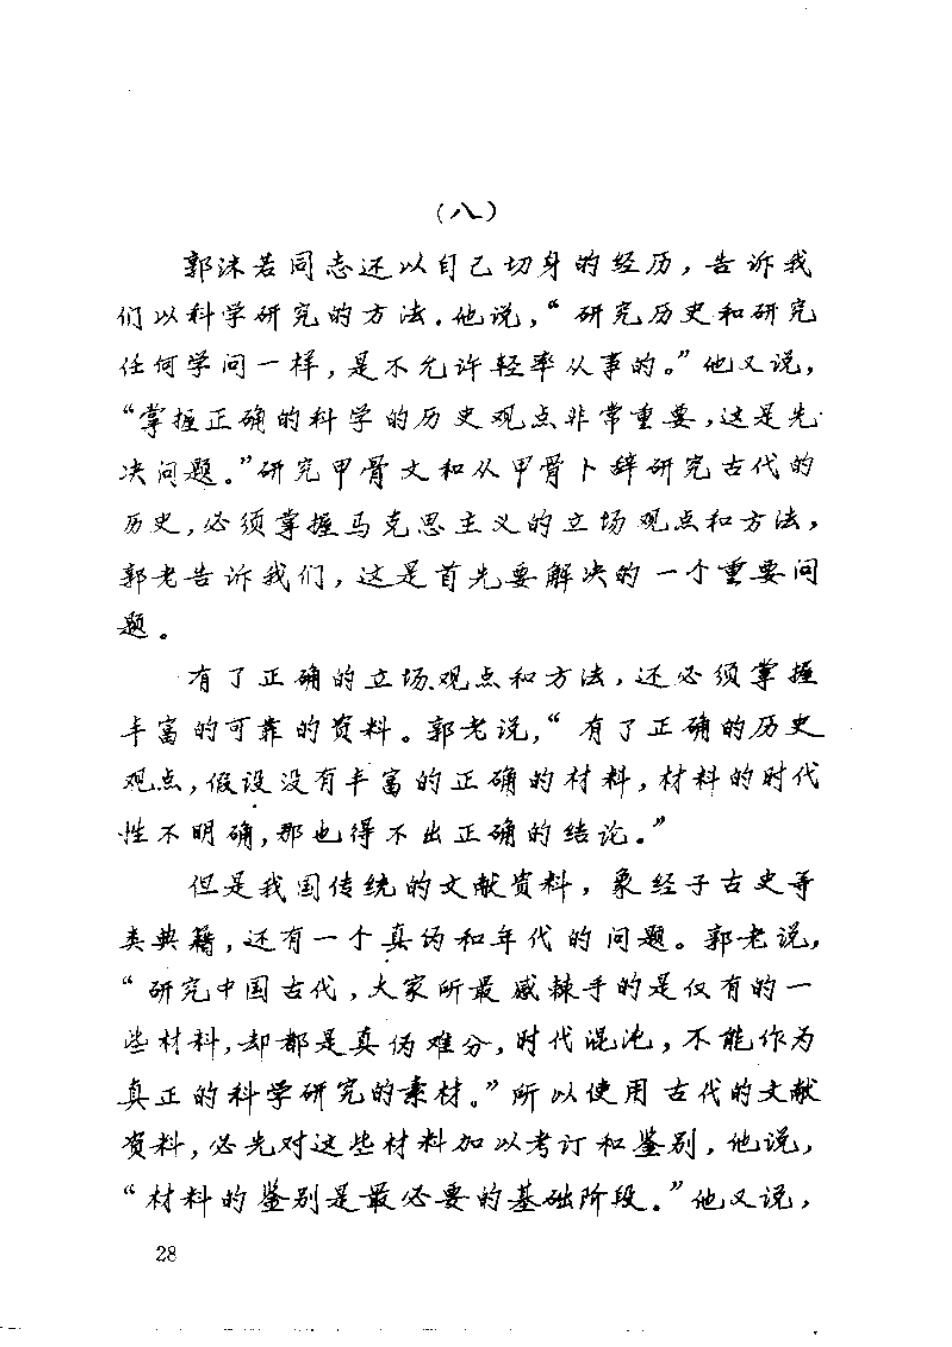 （八）
郭沫若同志还以自己切身的经历，告诉我
们以科学研究的方法.他说，“研究历史和研究
任何学问一样，是不允许轻率从事的。”他又说，
“掌握正确的科学的历史观点非常重要，这是先
决问题。”研究甲骨文和从甲骨卜辞研究古代的
历史，必须掌握马克思主义的立场观点和方法，
郭老告诉我们，这是首先要解决的一个重要问
题。
有了正确的立场观点和方法，还必须掌握
丰富的可靠的资料。郭老说，“有了正确的历史
观点，假设没有丰富的正确的材料，材料的时代
性不明确，那也得不出正确的结论。”
但是我国传统的文献资料，象经子古史等
类典籍，还有一个真伪和年代的问题。郭老说，
“研究中国古代，大家所最感棘手的是仅有的一
些材料，却都是真伪难分，时代混沌，不能作为
真正的科学研究的素材。”所以使用古代的文献
资料，必先对这些材料加以考订和鉴别，他说，
“材料的鉴别是最必要的基础阶段。”他又说，
28